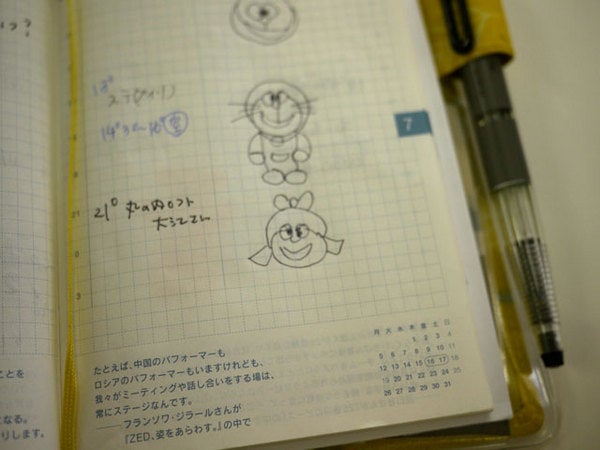 21° 丸の内ロフト
7
21
0
3
たとえば、中国のパフォーマーも
ロシアのパフォーマーもいますけれども、
我々がミーティングや話し合いをする場は、
常にステージなんです。
——フランソワ・ジラールさんが
『ZED、姿をあらわす。』の中で
月 火 水 木 金 土 日
1 2 3 4
5 6 7 8 9 10 11
12 13 14 15 16 17 18
19 20 21 22 23 24 25
26 27 28 29 30 31
ことを
なる。
りします。